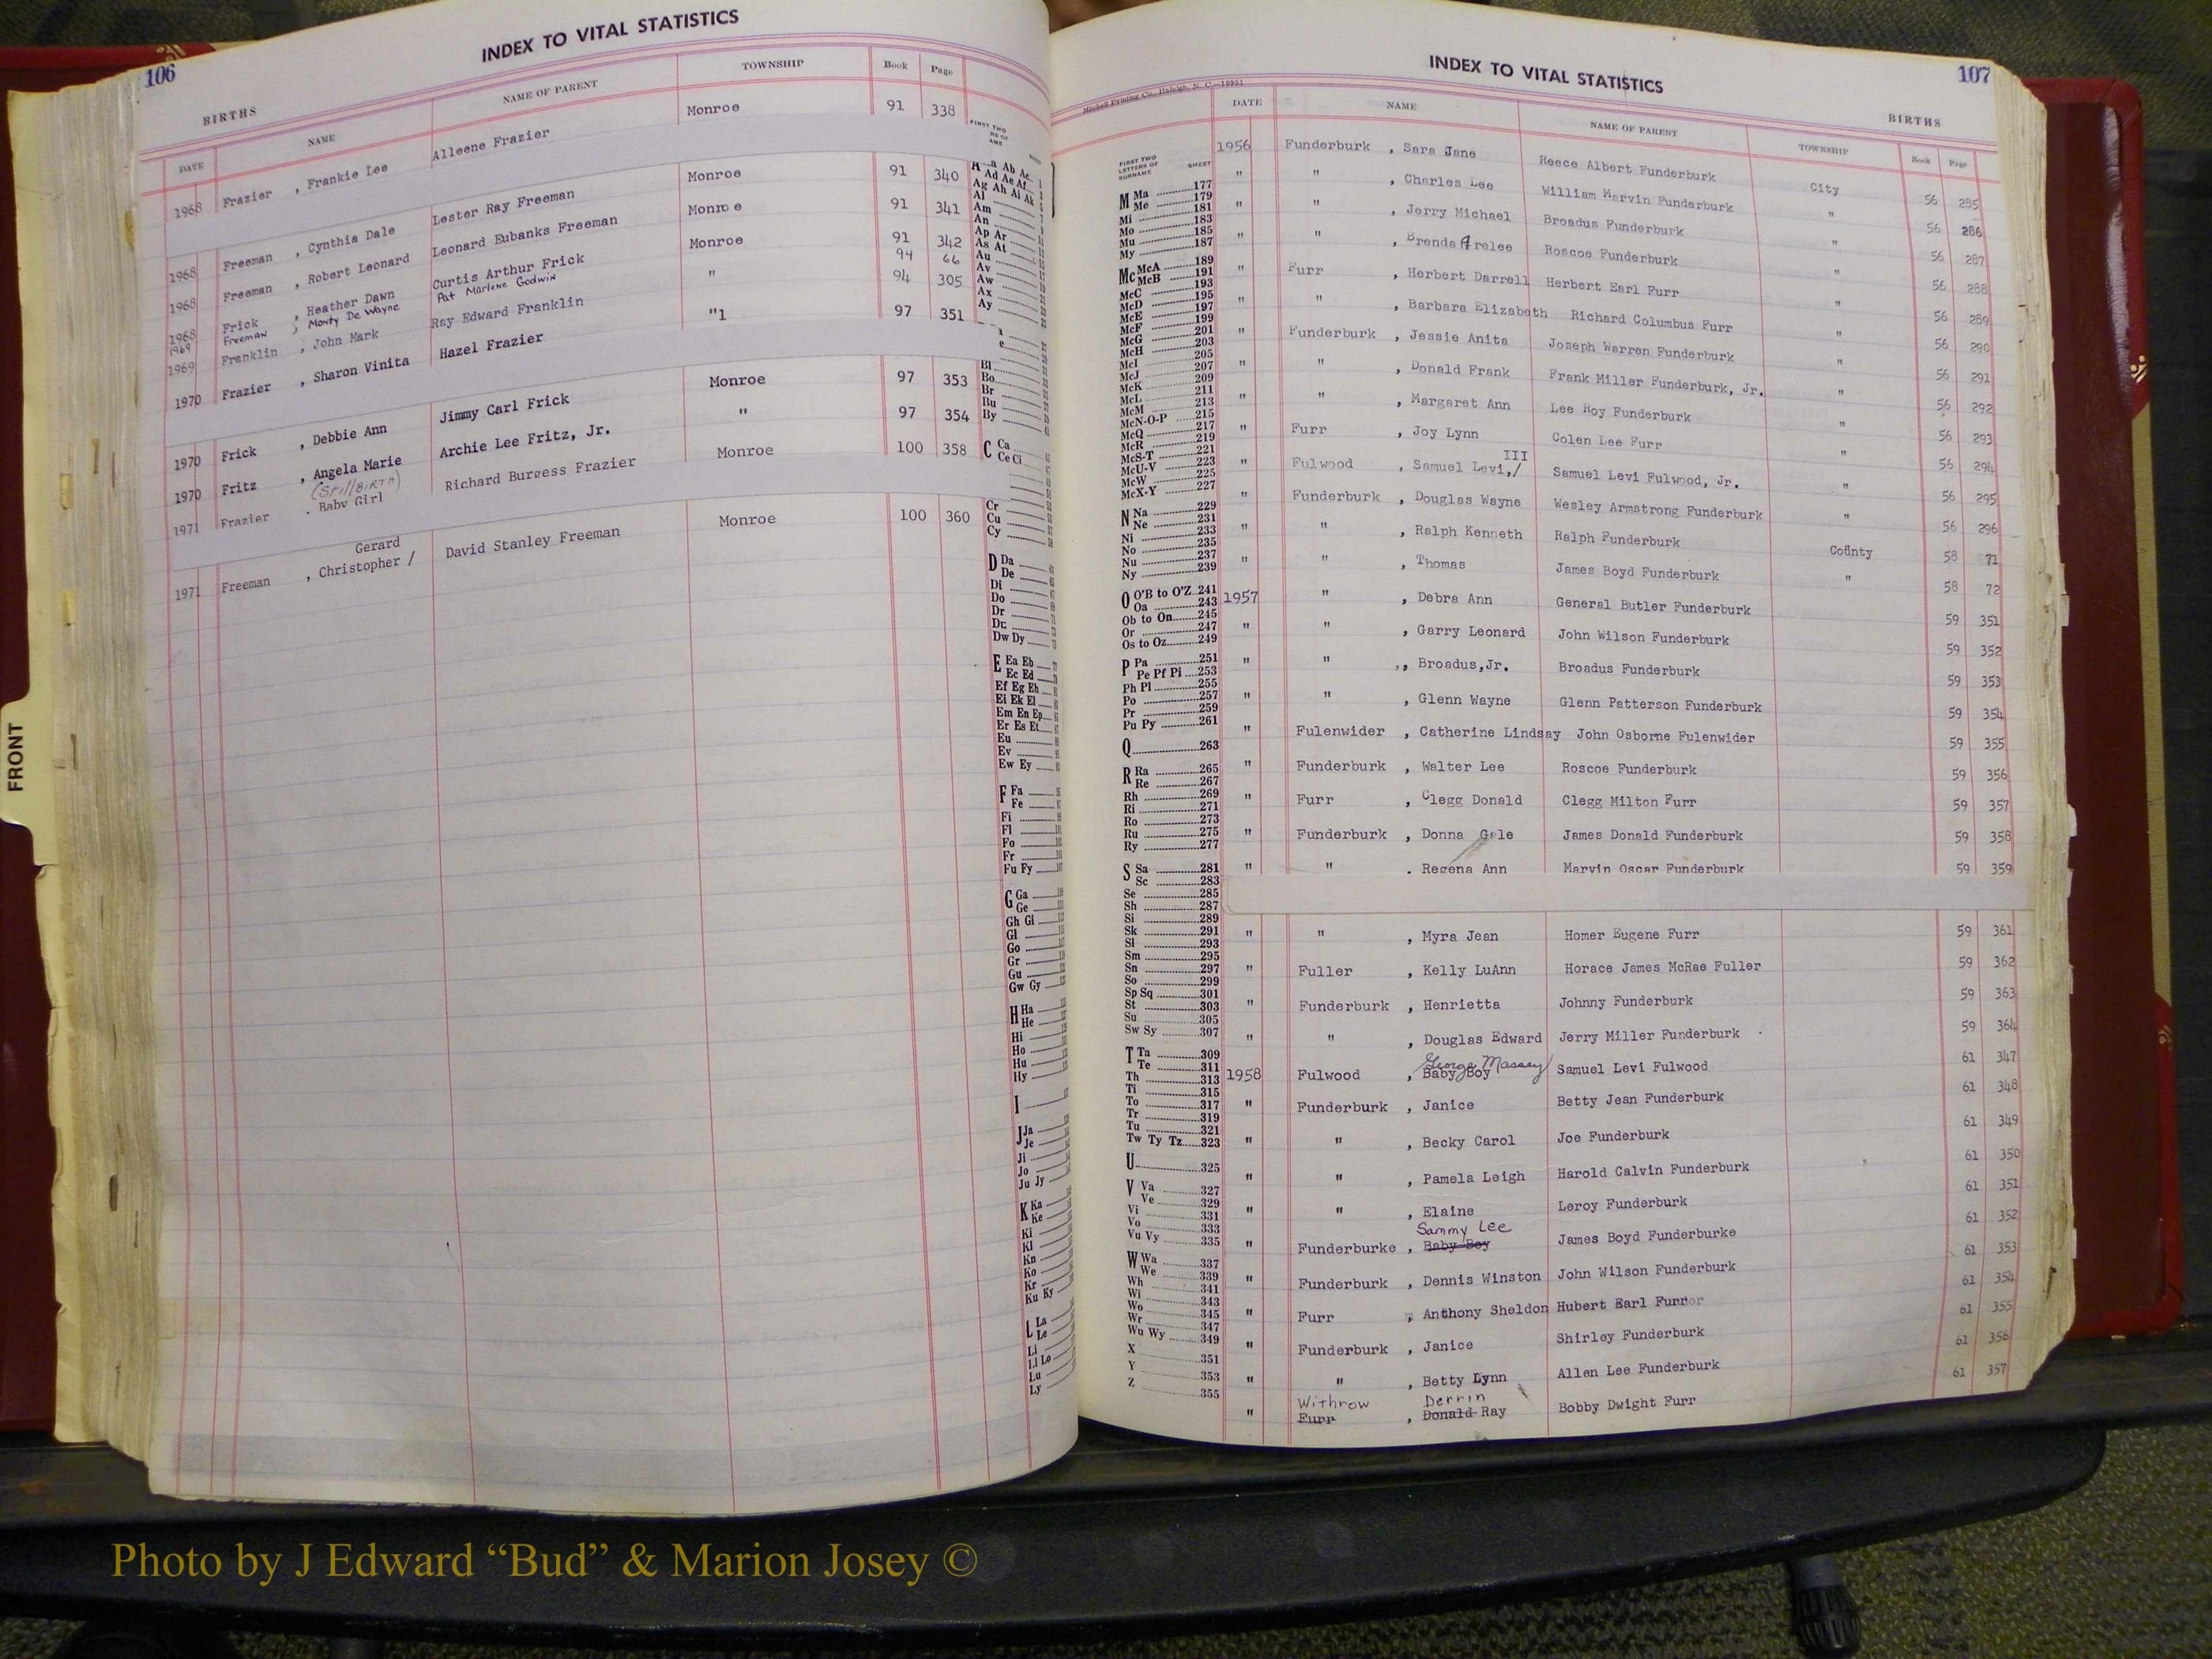 106
INDEX TO VITAL STATISTICS
BIRTHS
DATE NAME NAME OF PARENT TOWNSHIP Book Page
1968 Frazier , Frankie Lee Alleene Frazier Monroe 91 338
1968 Freeman , Cynthia Dale Lester Ray Freeman Monroe 91 340
1968 Freeman , Robert Leonard Leonard Eubanks Freeman Monroe 91 341
1968 Frick , Heather Dawn Curtis Arthur Frick Monroe 91 342
1969 Freeman , Monty De Wayne Pat Marlene Godwin 94 66
1969 Franklin , John Mark Ray Edward Franklin " 94 305
1970 Frazier , Sharon Vinita Hazel Frazier "1 97 351
1970 Frick , Debbie Ann Jimmy Carl Frick Monroe 97 353
1970 Fritz , Angela Marie Archie Lee Fritz, Jr. " 97 354
(StillBIRTH)
1971 Frazier , Baby Girl Richard Burgess Frazier Monroe 100 358
Gerard
1971 Freeman , Christopher / David Stanley Freeman Monroe 100 360
FRONT
C Ca
Ce Ci
Cr
Cu
Cy
D Da
De
Di
Do
Dr
Du
Dw Dy
E Ea Eb
Ec Ed
Ef Eg Eh
Ei Ek El
Em En Ep
Er Es Et
Eu
Ev
Ew Ey
F Fa
Fe
Fi
Fl
Fo
Fr
Fu Fy
G Ga
Ge
Gh Gi
Gl
Go
Gr
Gu
Gw Gy
H Ha
He
Hi
Ho
Hu
Hy
I
J Ja
Je
Ji
Jo
Ju Jy
K Ka
Ke
Ki
Kl
Kn
Ko
Kr
Ku Ky
L La
Le
Li
Ll Lo
Lu
Ly
INDEX TO VITAL STATISTICS
107
Mitchell Printing Co., Raleigh, N. C.—10951
BIRTHS
DATE NAME NAME OF PARENT TOWNSHIP Book Page
1956 Funderburk , Sara Jane Reece Albert Funderburk City 56 285
" " , Charles Lee William Marvin Funderburk " 56 286
" " , Jerry Michael Broadus Funderburk " 56 287
" " , Brenda Arelee Roscoe Funderburk " 56 288
" Furr , Herbert Darrell Herbert Earl Furr " 56 289
" " , Barbara Elizabeth Richard Columbus Furr " 56 290
" Funderburk , Jessie Anita Joseph Warren Funderburk " 56 291
" " , Donald Frank Frank Miller Funderburk, Jr. " 56 292
" " , Margaret Ann Lee Roy Funderburk " 56 293
" Furr , Joy Lynn Colen Lee Furr " 56 294
III
" Fulwood , Samuel Levi,/ Samuel Levi Fulwood, Jr. " 56 295
" Funderburk , Douglas Wayne Wesley Armstrong Funderburk " 56 296
" " , Ralph Kenneth Ralph Funderburk County 58 71
" " , Thomas James Boyd Funderburk " 58 72
1957 " , Debra Ann General Butler Funderburk 59 351
" " , Garry Leonard John Wilson Funderburk 59 352
" " ,, Broadus,Jr. Broadus Funderburk 59 353
" " , Glenn Wayne Glenn Patterson Funderburk 59 354
" Fulenwider , Catherine Lindsay John Osborne Fulenwider 59 355
" Funderburk , Walter Lee Roscoe Funderburk 59 356
" Furr , Clegg Donald Clegg Milton Furr 59 357
" Funderburk , Donna Gale James Donald Funderburk 59 358
" " , Regena Ann Marvin Oscar Funderburk 59 359
" " , Myra Jean Homer Eugene Furr 59 361
" Fuller , Kelly LuAnn Horace James McRae Fuller 59 362
" Funderburk , Henrietta Johnny Funderburk 59 363
" " , Douglas Edward Jerry Miller Funderburk 59 364
George Massey
1958 Fulwood , Baby Boy Samuel Levi Fulwood 61 347
" Funderburk , Janice Betty Jean Funderburk 61 348
" " , Becky Carol Joe Funderburk 61 349
" " , Pamela Leigh Harold Calvin Funderburk 61 350
" " , Elaine Leroy Funderburk 61 351
Sammy Lee
" Funderburke , Baby Boy James Boyd Funderburke 61 352
" Funderburk , Dennis Winston John Wilson Funderburk 61 353
" Furr , Anthony Sheldon Hubert Earl Furr 61 354
" Funderburk , Janice Shirley Funderburk 61 355
" " , Betty Lynn Allen Lee Funderburk 61 356
Withrow Derrin
" Furr , Donald Ray Bobby Dwight Furr 61 357
FIRST TWO LETTERS OF SURNAME SHEET
M Ma 177
Me 179
Mi 181
Mo 183
Mu 185
My 187
Mc McA 189
McB 191
McC 193
McD 195
McE 197
McF 199
McG 201
McH 203
McI 205
McJ 207
McK 209
McL 211
McM 213
McN-O-P 215
McQ 217
McR 219
McS-T 221
McU-V 223
McW 225
McX-Y 227
N Na 229
Ne 231
Ni 233
No 235
Nu 237
Ny 239
O O'B to O'Z 241
Oa 243
Ob to On 245
Or 247
Os to Oz 249
P Pa 251
Pe Pf Pi 253
Ph Pl 255
Po 257
Pr 259
Pu Py 261
Q 263
R Ra 265
Re 267
Rh 269
Ri 271
Ro 273
Ru 275
Ry 277
S Sa 281
Sc 283
Se 285
Sh 287
Si 289
Sk 291
Sl 293
Sm 295
Sn 297
So 299
Sp Sq 301
St 303
Su 305
Sw Sy 307
T Ta 309
Te 311
Th 313
Ti 315
To 317
Tr 319
Tu 321
Tw Ty Tz 323
U 325
V Va 327
Ve 329
Vi 331
Vo 333
Vu Vy 335
W Wa 337
We 339
Wh 341
Wi 343
Wo 345
Wr 347
Wu Wy 349
X 351
Y 353
Z 355
Photo by J Edward “Bud” & Marion Josey ©